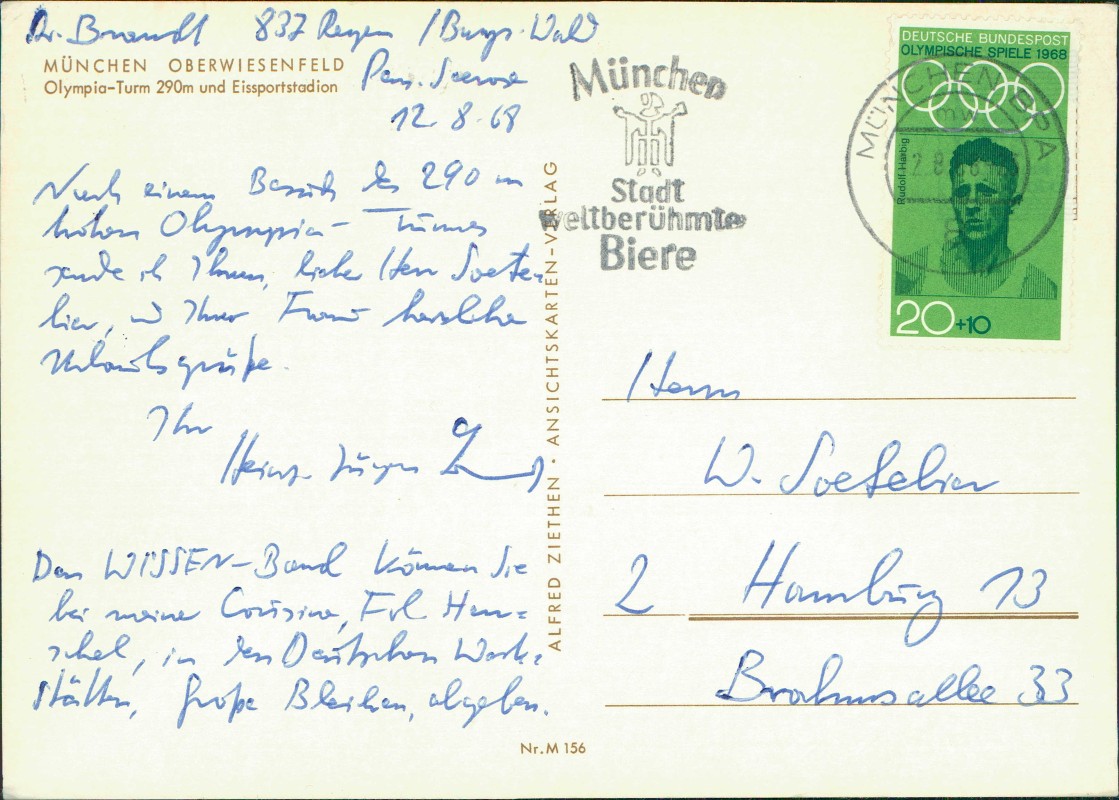 Dr. Brandt 837 Regen / Bayr. Wald
MÜNCHEN OBERWIESENFELD
Olympia-Turm 290m und Eissportstadion
Pens. Seerose
12.8.68
Nach einem Besuch des 290 m
hohen Olympia-Turmes
sende ich Ihnen, lieber Herr Soete-
bier, und Ihrer Frau herzliche
Urlaubsgrüße.
Ihr
Heinz-Jürgen
Den WISSEN-Band können Sie
bei meiner Cousine, Frl. Hen-
schel, in den Deutschen Werk-
stätten, Große Bleichen, abgeben.
ALFRED ZIETHEN · ANSICHTSKARTEN-VERLAG
Nr. M 156
München
Stadt
weltberühmter
Biere
DEUTSCHE BUNDESPOST
OLYMPISCHE SPIELE 1968
Rudolf Harbig
20+10
MÜNCHEN BPA
mw
Herrn
W. Soetebier
2 Hamburg 13
Brahmsallee 33